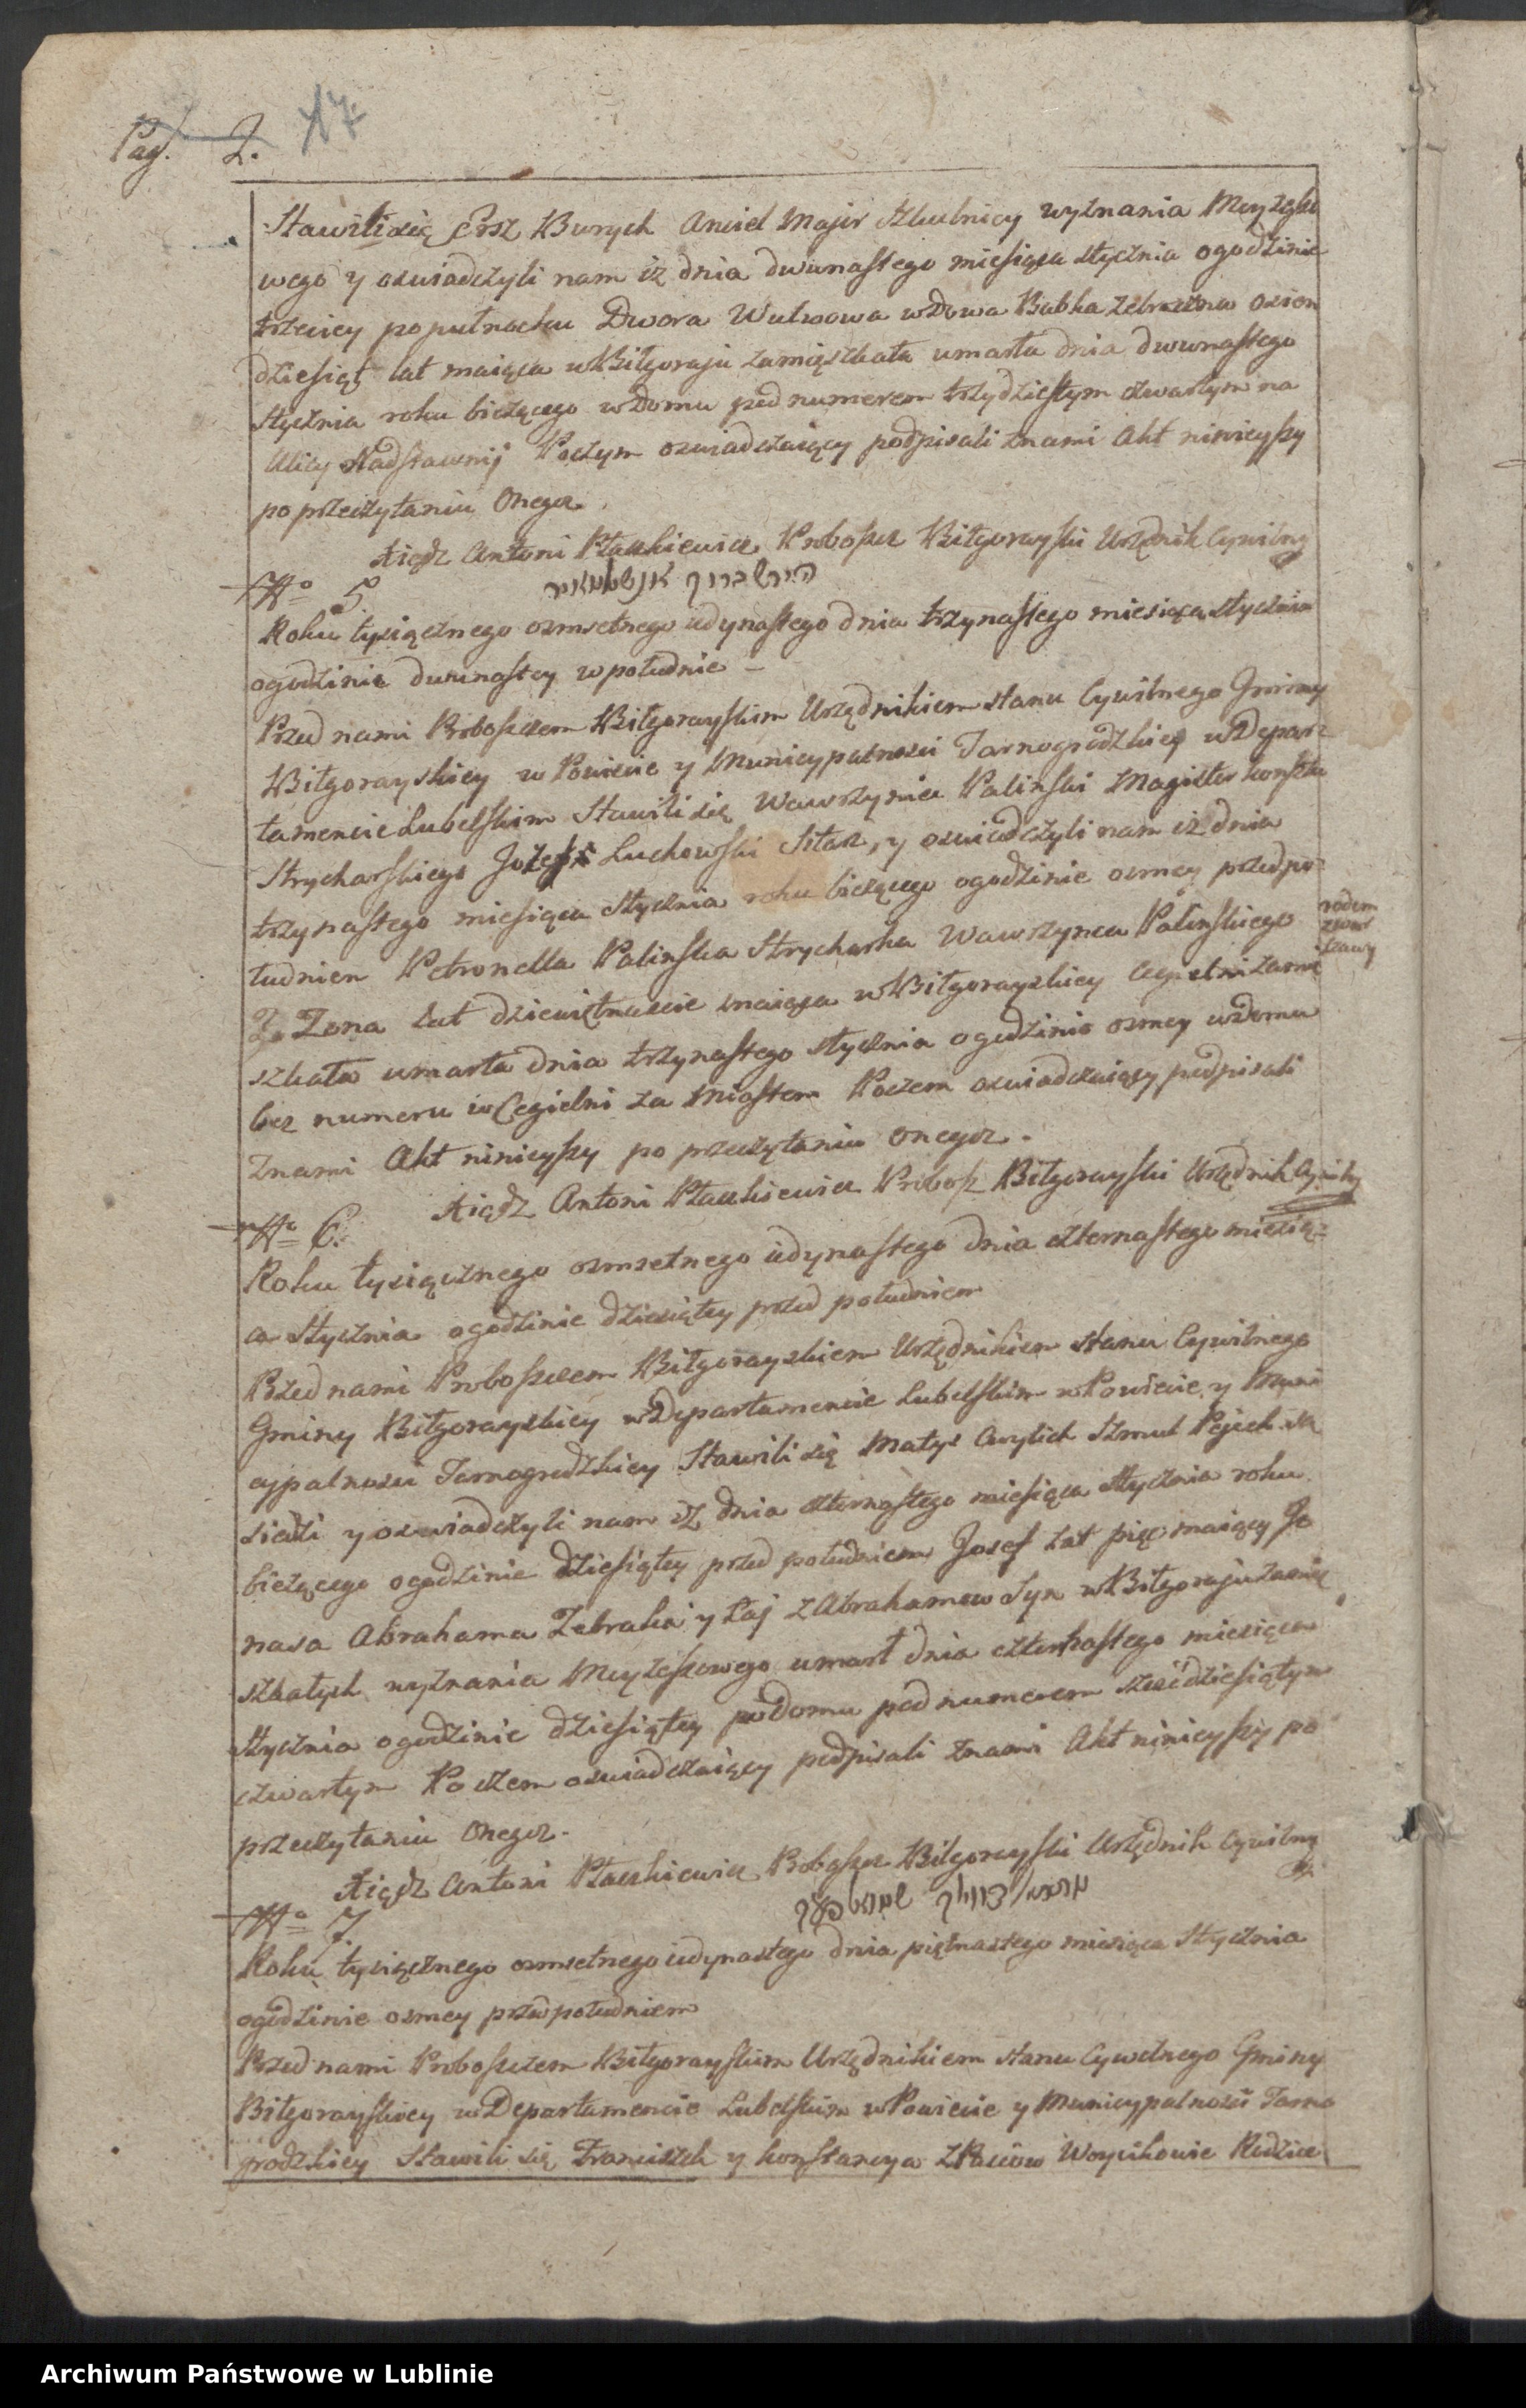 Pag. 2. 17
Stawili się Ersz Burych Anciel Majir Szkulnicy wyznania Moyzeszo
wego y oswiadczyli nam iz dnia dwunastego miesiąca stycznia ogodzinie
trzeciey popułnocku Dwora Wulwowa wdowa Babka zebrzona osiem
dziesiąt lat maiąca wBiłgoraju zamięszkała umarła dnia dwunastego
stycznia roku bieżącego wdomu pod numerem trzydziestym czwartym na
Ulicy Nadstawnij Poczym oswiadczaiący podpisali znami Akt ninieyszy
po przeczytaniu Onegoz.
Xiądz Antoni Ptaszkiewicz Proboszcz Biłgorayski Urzędnik Cywilny
No 5
Roku tysiącznego osmsetnego iedynastego dnia trzynastego miesiąca stycznia
ogodzinie dwunastey wpołudnie –
Przed nami Proboszczem Biłgorayskim Urzędnikiem stanu Cywilnego Gminy
Biłgorayskiey w Powiecie y Municypalnosci Tarnogrodzkiey wDepar=
tamencie Lubelskim Stawili się Wawrzyniec Palinski Magister konsztu
Strycharskiego Jozef Luchowski Sitarz, y oswiadczyli nam iz dnia
trzynastego miesiąca Stycznia roku bieżącego ogodzinie osmey przedpo=
łudniem Petronella Palinska Strycharka Wawrzynca Palinskiego
rodem
zwar
szawy
Zona lat dziewiętnascie maiąca wBiłgorayskiey Cegielni zamię
szkała umarła dnia trzynastego stycznia ogodzinie osmey wdomu
bez numeru wCegielni za Miastem Poczem oswiadczaiący podpisali
znami Akt ninieyszy po przeczytaniu onegoz.
Xiądz Antoni Ptaszkiewicz Probosz Biłgorayski Urzędnik Cywilny
No 6.
Roku tysiącznego osmsetnego iedynastego dnia czternastego miesią=
ca Stycznia ogodzinie dziesiątey przed południem
Przed nami Proboszczem Biłgorayskiem Urzędnikiem stanu Cywilnego
Gminy Biłgorayskiey wDepartamencie Lubelskim wPowiecie y Muni
cypalnosci Tarnogrodzkiey Stawili się Matys Szmul są
siedzi y oswiadczyli nam iz dnia czternastego miesiąca Stycznia roku
bieżącego ogodzinie dziesiątey przed południem Josef lat pięc maiący Jo
nasa Abrahama Zebraka y Łaj zAbrahamow Syn wBiłgoraju zamię
szkałych wyznania Moyzeszowego umarł dnia czternastego miesiąca
Stycznia ogodzinie dziesiątey wdomu pod numerem sześćdziesiątym
czwartym Poczem oswiadczaiący podpisali znami Akt ninieyszy po
przeczytaniu Onegoz.
Xiądz Antoni Ptaszkiewicz Proboszcz Biłgorayski Urzędnik Cywilny
No 7.
Roku tysiącznego osmsetnego iedynastego dnia piętnastego miesiąca Stycznia
ogodzinie osmey przedpołudniem
Przed nami Proboszczem Biłgorayskim Urzędnikiem stanu Cywilnego Gminy
Biłgorayskiey wDepartamencie Lubelskim wPowiecie y Municypalnosci Tarno
grodzkiey Stawili się Franciszek y Konstancya zKuciow Woycikowie Rodzice
Archiwum Państwowe w Lublinie